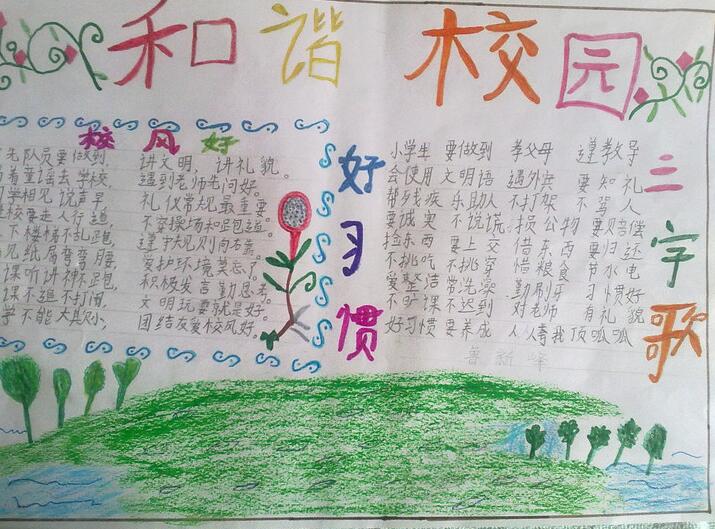 和谐校园
校风好
先队员要做到，
着看谣去学校，
学相见说声早，
校要走人行道，
下楼梯不乱跑，
见纸屑替弯腰，
课听讲神不跑，
课不追不打闹，
学不能大其小，
讲文明，讲礼貌。
遇到老师老问好。
礼仪常规最重要。
不穿操场和跑道。
遵守规则向右靠。
爱护环境莫忘了。
积极发言勤思考。
文明玩要就是好。
团结友爱校风好。
好习惯
三字歌
小学生 要做到 孝父母 遵教导
会使用 文明语 遇外宾 要知礼
帮残疾 乐助人 不打架 不骂人
要诚实 不说谎 损公物 要赔偿
捡东西 要上交 借东西 要归还
不挑吃 不挑穿 惜粮食 节水电
爱整洁 常洗澡 勤刷牙 习惯好
不旷课 不迟到 对老师 有礼貌
好习惯 要养成 人人夸我 顶呱呱